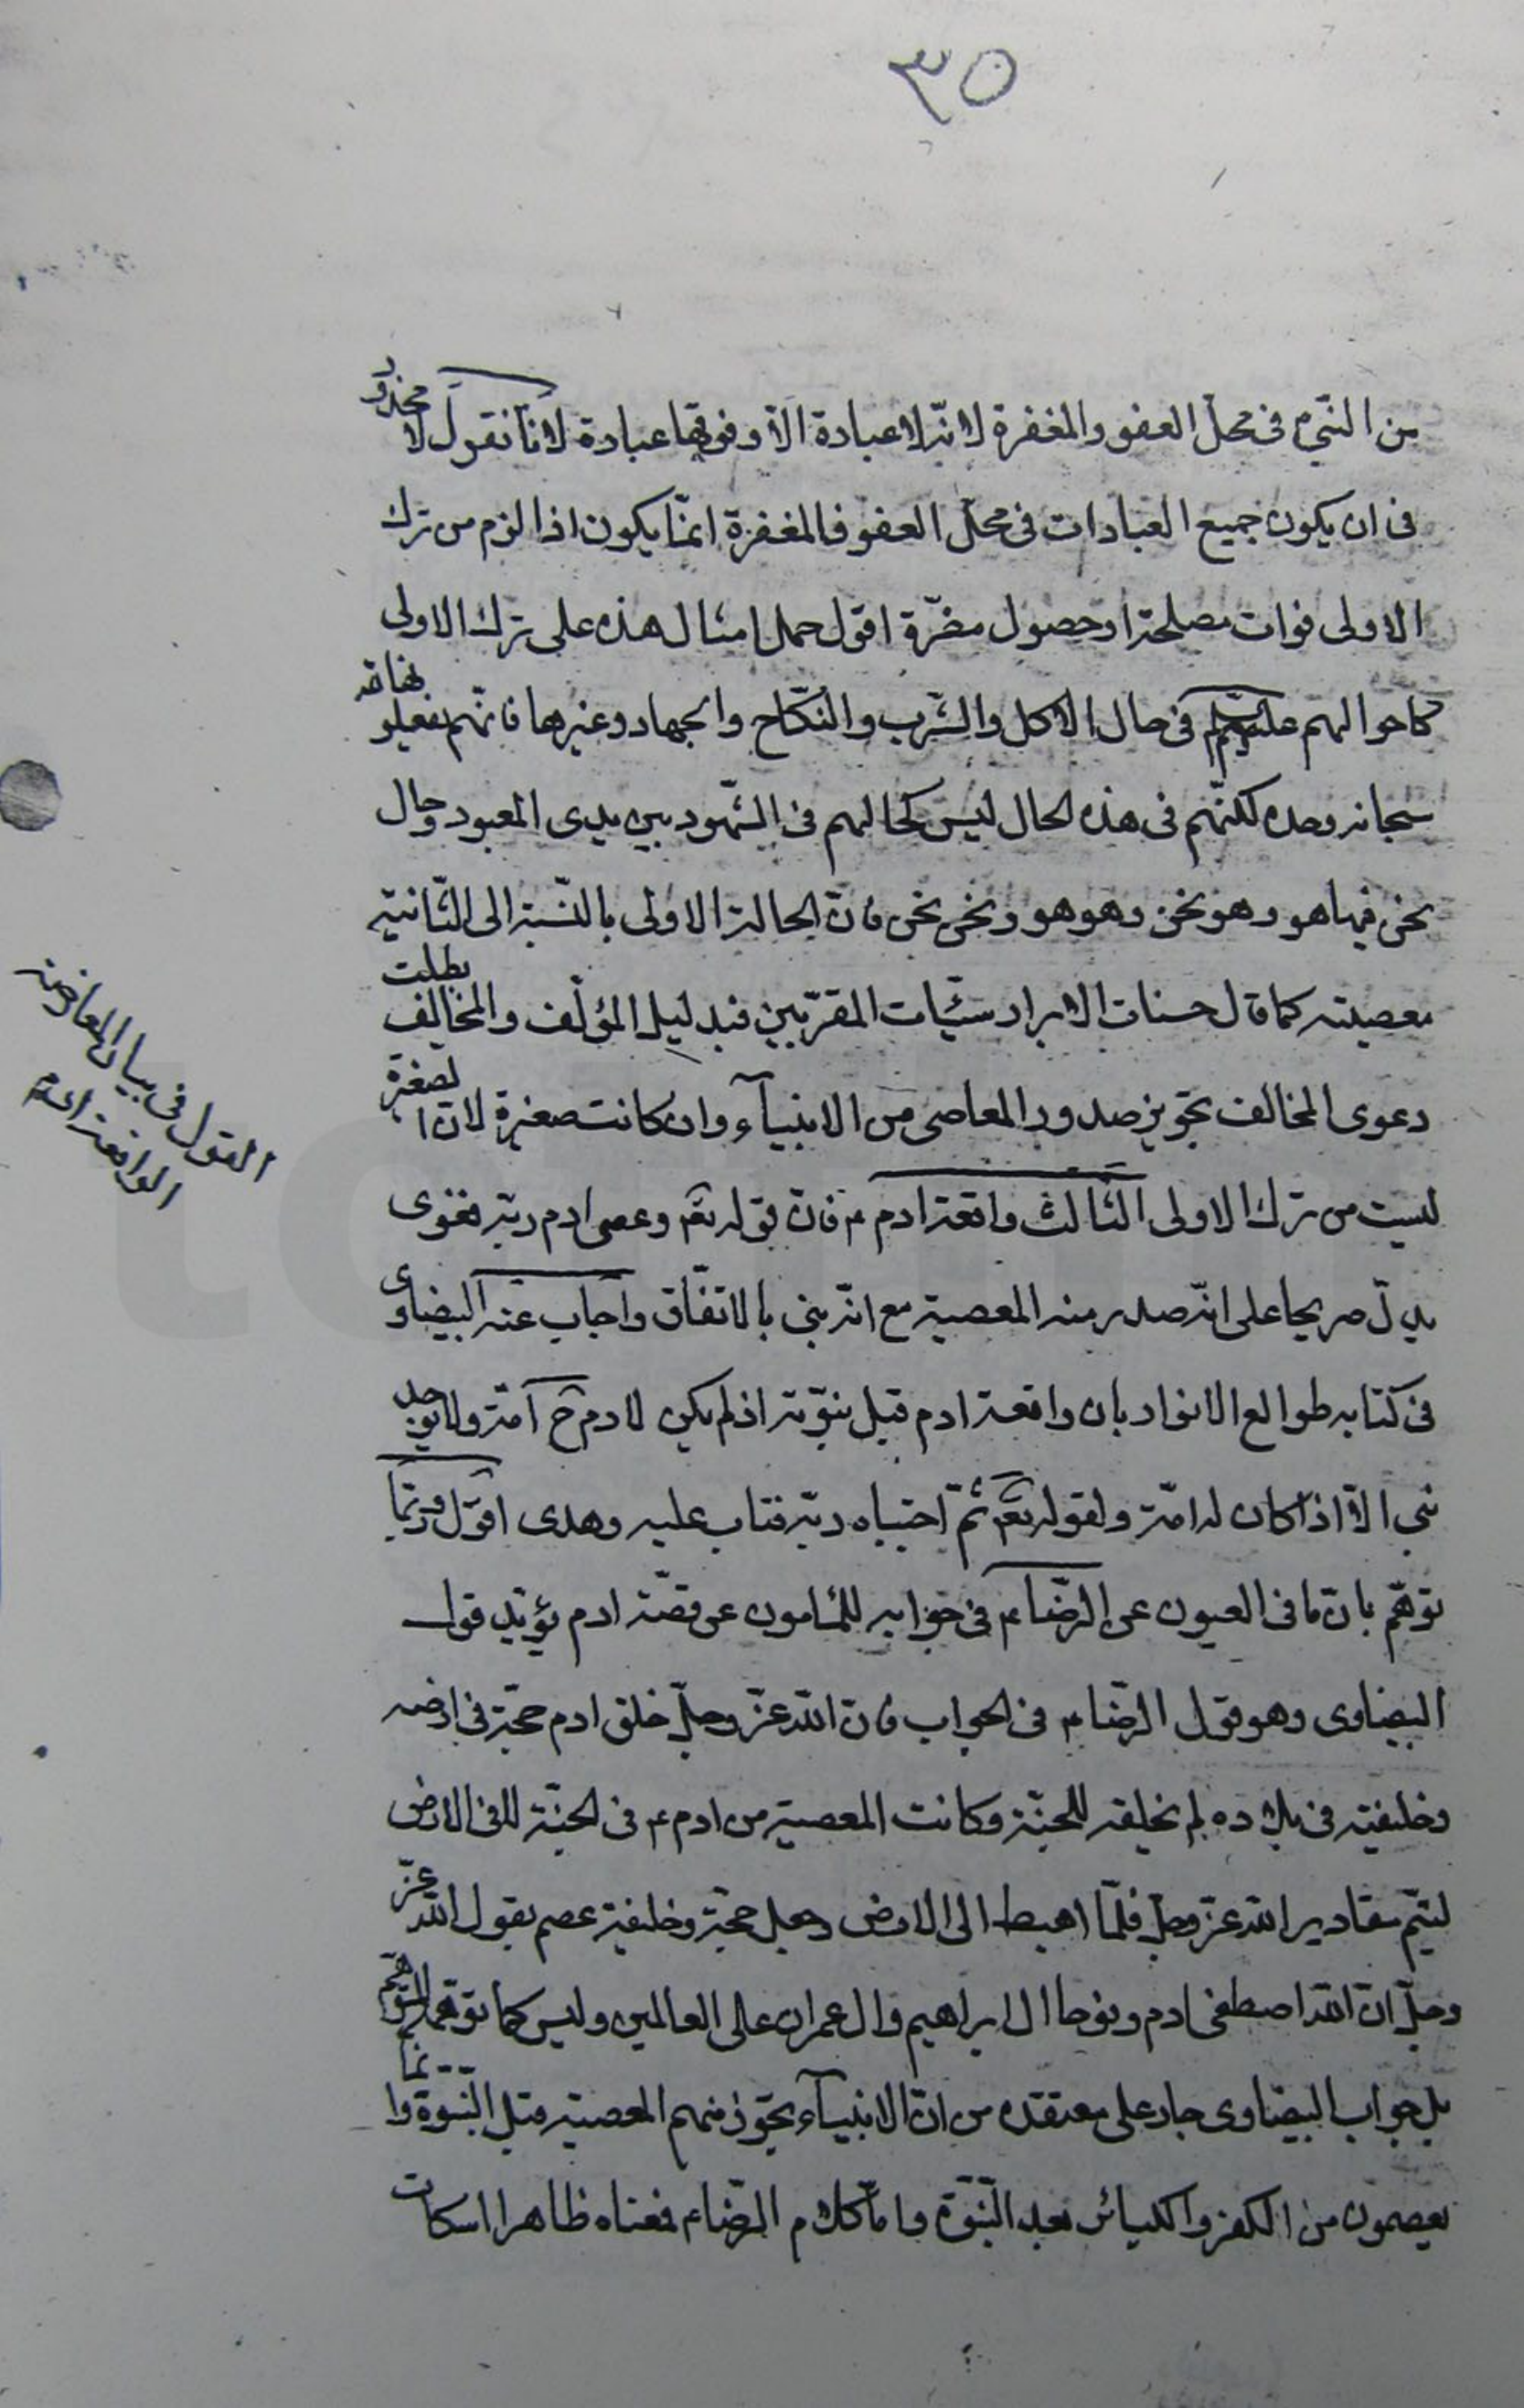 ٣٥
من النبی فی محل العفو والمغفرة لانه لا عبادة الا وفوقها عبادة لانا نقول لا محذور
فی ان یکون جمیع العبادات فی محل العفو فالمغفرة انما یکون اذا لزم من ترك
الاولی فوات مصلحة او حصول مضرة اقول حمل امثال هذه علی ترك الاولی
کاحوالهم علیهم فی حال الاکل والشرب والنکاح والجهاد وغیرها فانهم
سبحانه وحده لکنهم فی هذه الحال لیس کحالهم فی الشهود بین یدی المعبود وحال
نحن فیها هو وهو نحن وهو هو ونحن نحن فان الحالة الاولی بالنسبة الی الثانیة
معصیته کما قال حسنات الابرار سیئات المقربین فبدلیل المؤلف والمخالف بطلت
دعوی المخالف تجویز صدور المعاصی من الانبیآء وان کانت صغیرة لان الصغیرة
لیست من ترك الاولی الثالث واقعة ادم ع فان قوله تعم وعصی ادم ربه فغوی
یدل صریحا علی انه صدر منه المعصیة مع انه نبی بالاتفاق واجاب عنه البیضاوی
فی کتابه طوالع الانوار بان واقعة ادم قبل نبوته اذ لم یکن لادم ح امة ولا یوجد
نبی الا اذا کان له امة ولقوله تعم ثم اجتباه ربه فتاب علیه وهدی اقول وربما
توهم بان ما فی العیون عن الرضا ع فی جوابه للمامون عن قصة ادم یؤید قول
البیضاوی وهو قول الرضا ع فی الجواب فان الله عز وجل خلق ادم حجة فی ارضه
وخلیفته فی بلاده لم یخلقه للجنة وکانت المعصیة من ادم ع فی الجنة لا فی الارض
لیتم مقادیر الله عز وجل فلما اهبط الی الارض وجعل حجة وخلیفة عصم بقول الله عز
وجل ان الله اصطفی ادم ونوحا ال ابراهیم وال عمران علی العالمین ولیس کما توهمه المتوهم
بل جواب البیضاوی جار علی معتقده من ان الانبیآء یجوز منهم المعصیة قبل النبوة وانما
یعصمون من الکفر والکبائر بعد النبوة واما کلام الرضا ع فمعناه ظاهرا اسکات
القول فی بیان المعارضه
الواقعة ادم